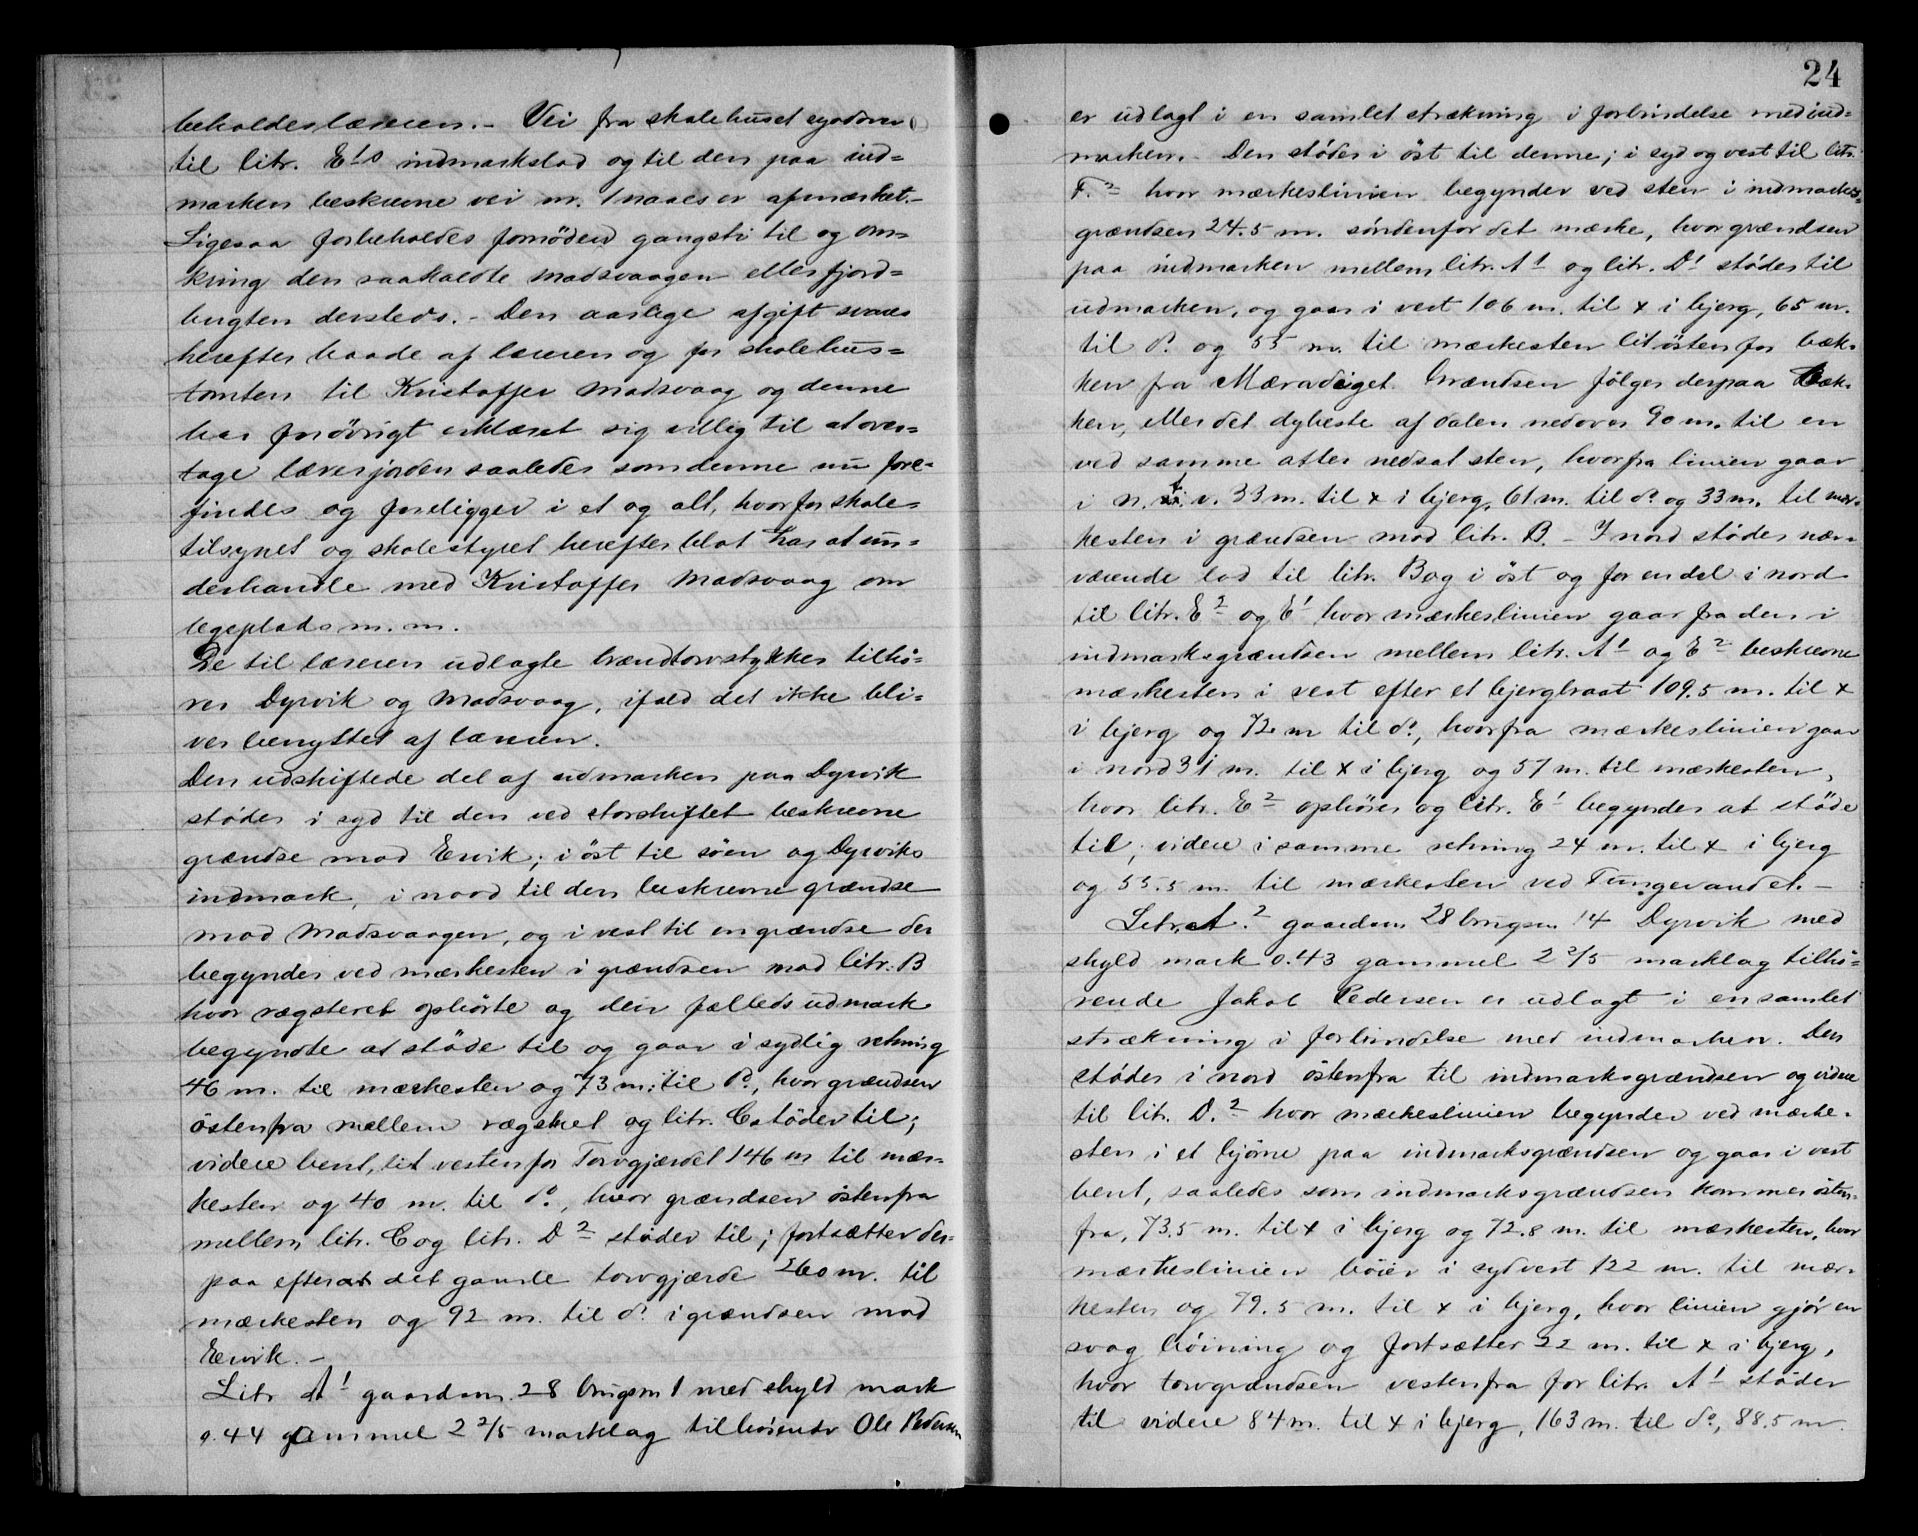 beholdes læreren. - Vei fra skolehuset sydover
til litr. E¹s indmarkslod og til den paa ind=
marken beskrevne vei nr. 1 naaes er afmærket. -
Ligesaa forbeholdes fornöden gangsti til og om=
kring den saakaldte Madsvaagen eller fjord=
bugten dersteds. - Den aarlige afgift svares
herefter baade af læreren og for skolehus=
tomten til Kristoffer Madsvaag og denne
har forövrigt erklæret sig villig til at over=
tage lærerjorden saaledes som denne nu fore=
findes og foreligger i et og alt, hvorfor skole=
tilsynet og skolestyret herefter blot har at un=
derhandle med Kristoffer Madsvaag om
legeplads m. m.
De til læreren udlagte brændtorvstykker tilhö=
rer Dyrvik og Madsvaag, ifald det ikke bli=
ver benyttet af læreren.
Den udskiftede del af udmarken paa Dyrvik
stöder i syd til den ved storskiftet beskrevne
grændse mod Ervik; i öst til söen og Dyrviks
indmark, i nord til den beskrevne grændse
mod Madsvaagen, og i vest til en grændse der
begynder ved mærkesten i grændsen mod litr. B
hvor rægsteret ophörte og den fælleds udmark
begyndte at stöde til og gaar i sydlig retning
46 m. til mærkesten og 73 m. til do., hvor grændsen
östenfra mellem rægskel og litr. C stöder til;
videre bent, lit vestenfor Torvgjærdet 146 m til mær=
kesten og 40 m. til do, hvor grændsen östenfra
mellem litr. C og litr. D² stöder til; fortsætter der=
paa efter det gamle torvgjærde 260 m. til
mærkesten og 92 m. til do i grændsen mod
Ervik. -
Litr A¹ gaardsn. 28 brugsn 1 med skyld mark
0.44 gammel 2 2/5 marklag tilhörende Ole Pedersen
24
er udlagt i en samlet strækning i forbindelse med ind=
marken. - Den stöder i öst til denne; i syd og vest til litr.
F.² hvor mærkeslinien begynder ved sten i indmarks=
grændsen 24.5 m. söndenfor det mærke, hvor grændsen
paa indmarken mellem litr. A¹ og litr. D¹ stöder til
udmarken, og gaar i vest 106 m. til x i bjerg, 65 m.
til do. og 55 m. til mærkesten lit östenfor bæk=
ken fra Mæradiget. Grændsen fölger derpaa bæk=
ken, eller det dybeste af dalen nedover 90 m. til en
ved samme atter nedsat sten, hvorfra linien gaar
i n. t. v. 33 m. til x i bjerg, 61 m. til do og 33 m. til mær=
kesten i grændsen mod litr. B. - I nord stöder nær=
værende lod til litr. B og i öst og for en del i nord
til litr. E² og E¹ hvor mærkeslinien gaar fra den i
indmarksgrændsen mellem litr. A¹ og E² beskrevne
mærkesten i vest efter et bjergbraat 109.5 m. til x
i bjerg og 72 m til do, hvorfra mærkeslinien gaar
i nord 31 m. til x i bjerg og 57 m. til mærkesten,
hvor litr. E² ophörer og litr. E¹ begynder at stöde
til; videre i samme retning 24 m. til x i bjerg
og 55.5 m. til mærkesten ved Tungevandet. -
Litr. A.² gaardsn. 28 brugsn. 14 Dyrvik med
skyld mark 0.43 gammel 2 2/5 marklag tilhö=
rende Jakob Pedersen er udlagt i en samlet
strækning i forbindelse med indmarken. Den
stöder i nord östenfra til indmarksgrændsen og videre
til litr. D.² hvor mærkeslinien begynder ved mærke=
sten i et hjörne paa indmarksgrændsen og gaar i vest
bent, saaledes som indmarksgrændsen kommer östen=
fra, 73.5 m. til x i bjerg og 72.8 m. til mærkesten, hvor
mærkeslinien böier i sydvest 122 m. til mær=
kesten og 79.5 m. til x i bjerg, hvor linien gjör en
svag böining og fortsætter 22 m. til x i bjerg,
hvor torvgrændsen vestenfra for litr. A¹ stöder
til videre 84 m. til x i bjerg, 163 m. til do, 88.5 m.